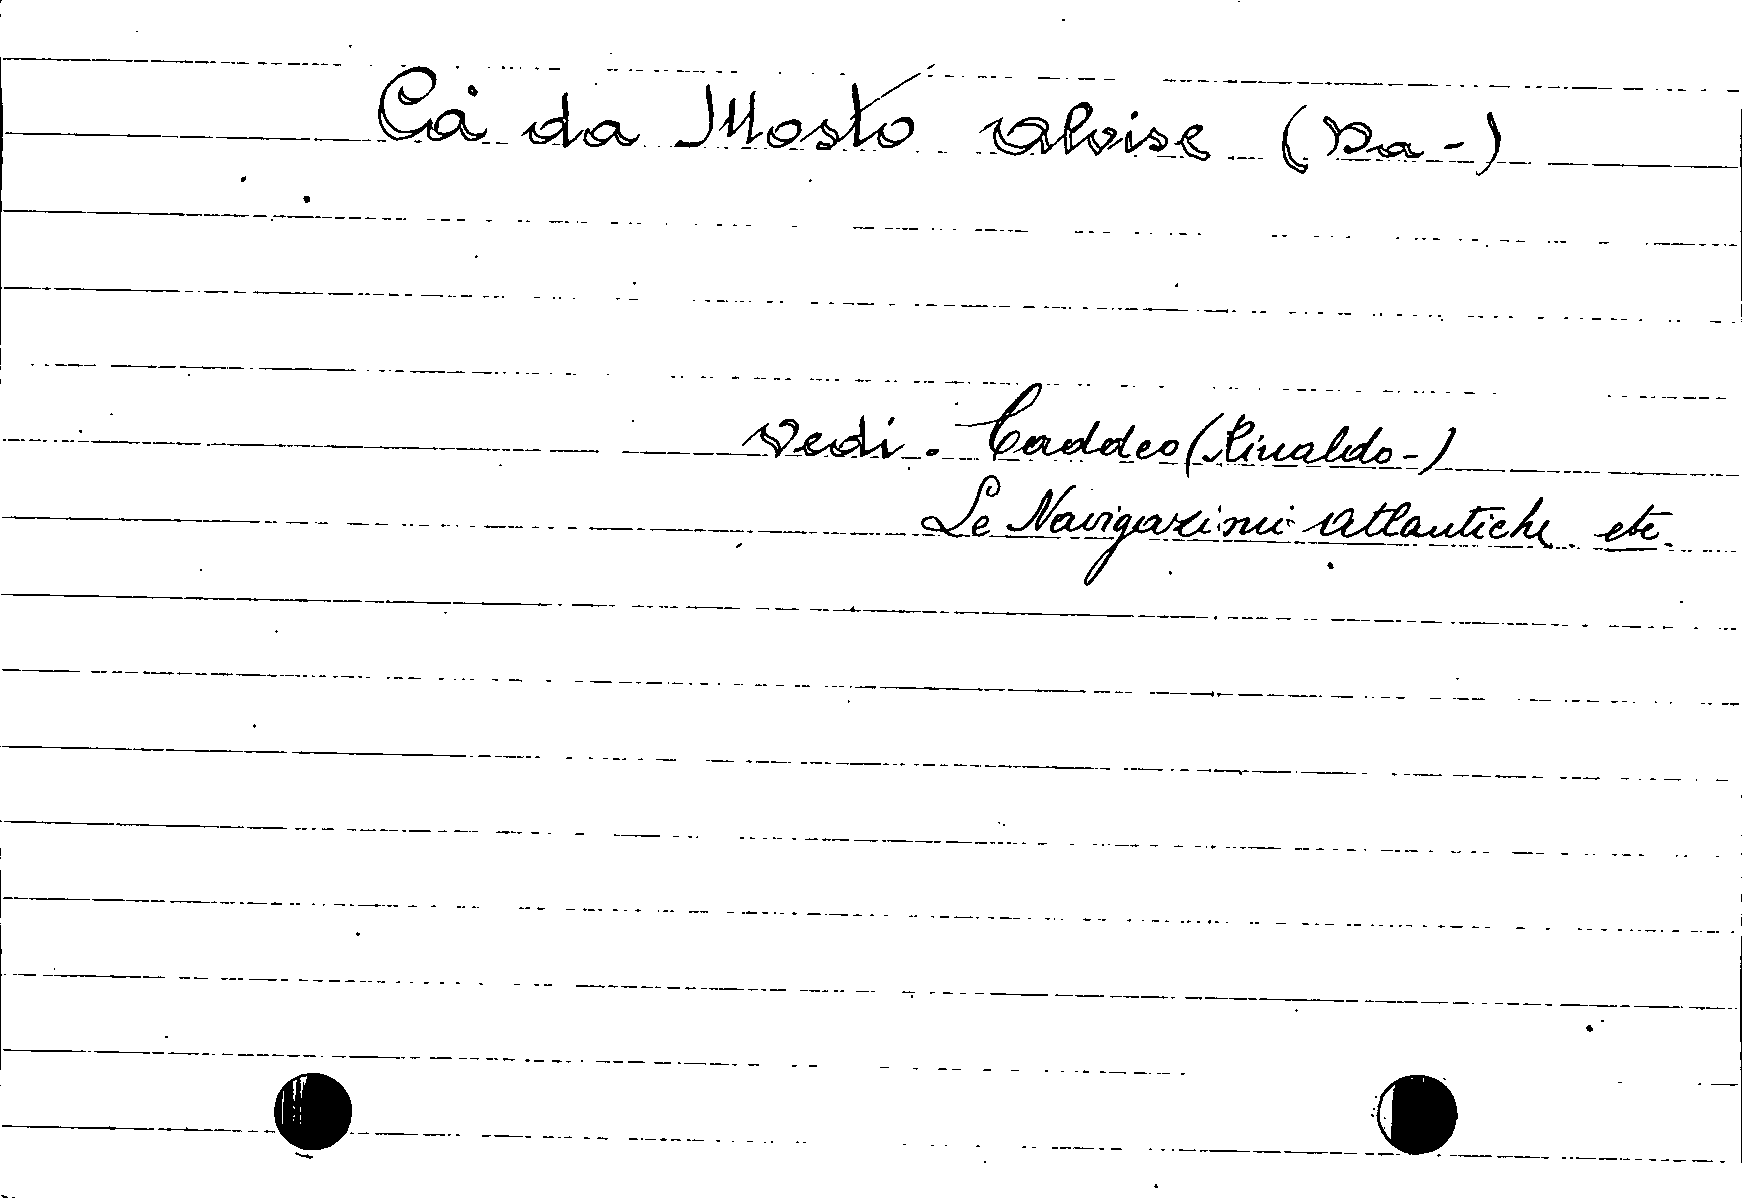 Cà da Mosto Alvise (Da-)
vedi. Caddeo (Rinaldo-)
Le Navigazioni atlantiche etc.